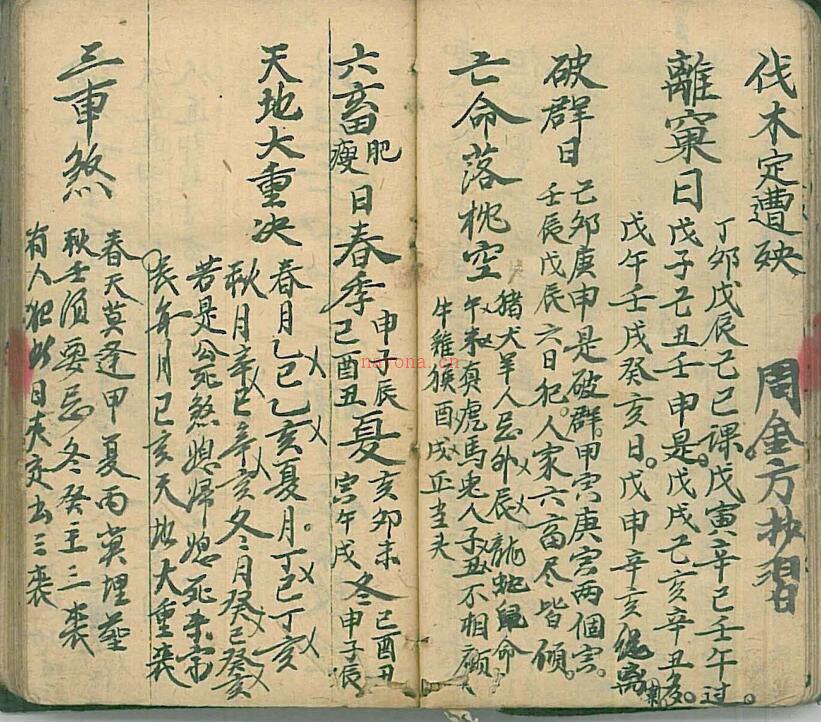 伐木定遭殃
周金方抄習
離窠日
丁卯戊辰己巳課戊寅辛巳壬午过。
戊子己丑壬申是。戊戌己亥辛丑多。
戊午壬戌癸亥日。戊申辛亥
破群日
己卯庚申是破群。甲寅庚寅两個寅。
壬辰戊辰六日犯。人家六畜尽皆傾。
亡命落枕空
猪犬羊人忌卯辰。龍蛇鼠命
午未有虎馬兎人子丑不相顧
牛雞猴酉戌正当头
六畜肥瘦日春季申子辰巳酉丑夏亥卯未寅午戌冬巳酉丑申子辰
天地大重决
春月乙巳乙亥夏月。丁巳丁亥
秋月辛巳辛亥冬月癸巳癸亥
若是公死煞媳婦媳死来
年月巳亥天地大重丧
三車煞
春天莫逢甲夏丙莫埋葬
秋壬須要忌冬癸主三丧
有人犯此日夾定出三丧
nayona.cn